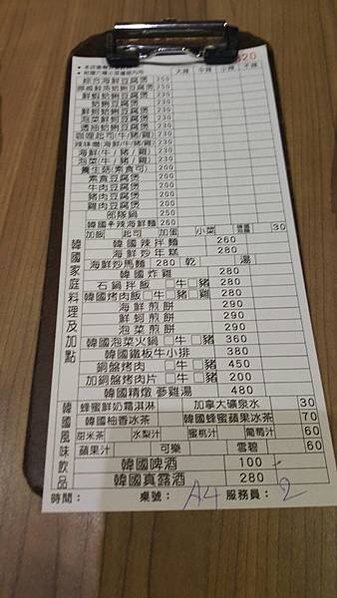 20
大辣 中辣 小辣 不辣
綜合海鮮豆腐煲 250
230
蛤蜊豆腐煲 230
鮮蚵豆腐煲 230
泡菜鮮蚵豆腐煲 230
230
咖哩起司(牛/豬/雞) 230
230
海鮮(牛/豬/雞) 230
泡菜(牛/豬/雞) 230
養生菇(素食可) 230
素食豆腐煲 200
牛肉豆腐煲 200
豬肉豆腐煲 200
雞肉豆腐煲 200
部隊鍋 250
韓國辛辣海鮮麵 260
加飯 起司 加蛋 小菜 30
韓國家庭料理及加點
韓國辣拌麵 260
海鮮炒年糕 280
海鮮炒馬麵 280 乾 湯
韓國炸雞 280
石鍋拌飯 □牛 □豬 280
韓國烤肉飯 □牛 □豬 □雞 280
海鮮煎餅 290
鮮蚵煎餅 290
泡菜煎餅 290
韓國泡菜火鍋 □牛 □豬 360
韓國鐵板牛小排 380
銅盤烤肉 □牛 □豬 450
加銅盤烤肉片 □牛 □豬 200
韓國精燉蔘雞湯 480
韓國風味飲品
韓國蜂蜜鮮奶霜淇淋 加拿大礦泉水 30
韓國柚香冰茶 韓國蜂蜜蘋果冰茶 70
甜米茶 水梨汁 蜜桃汁 葡萄汁 60
蘋果汁 可樂 雪碧 60
韓國啤酒 100
韓國真露酒 280
時間： 桌號： A4 服務員： 2